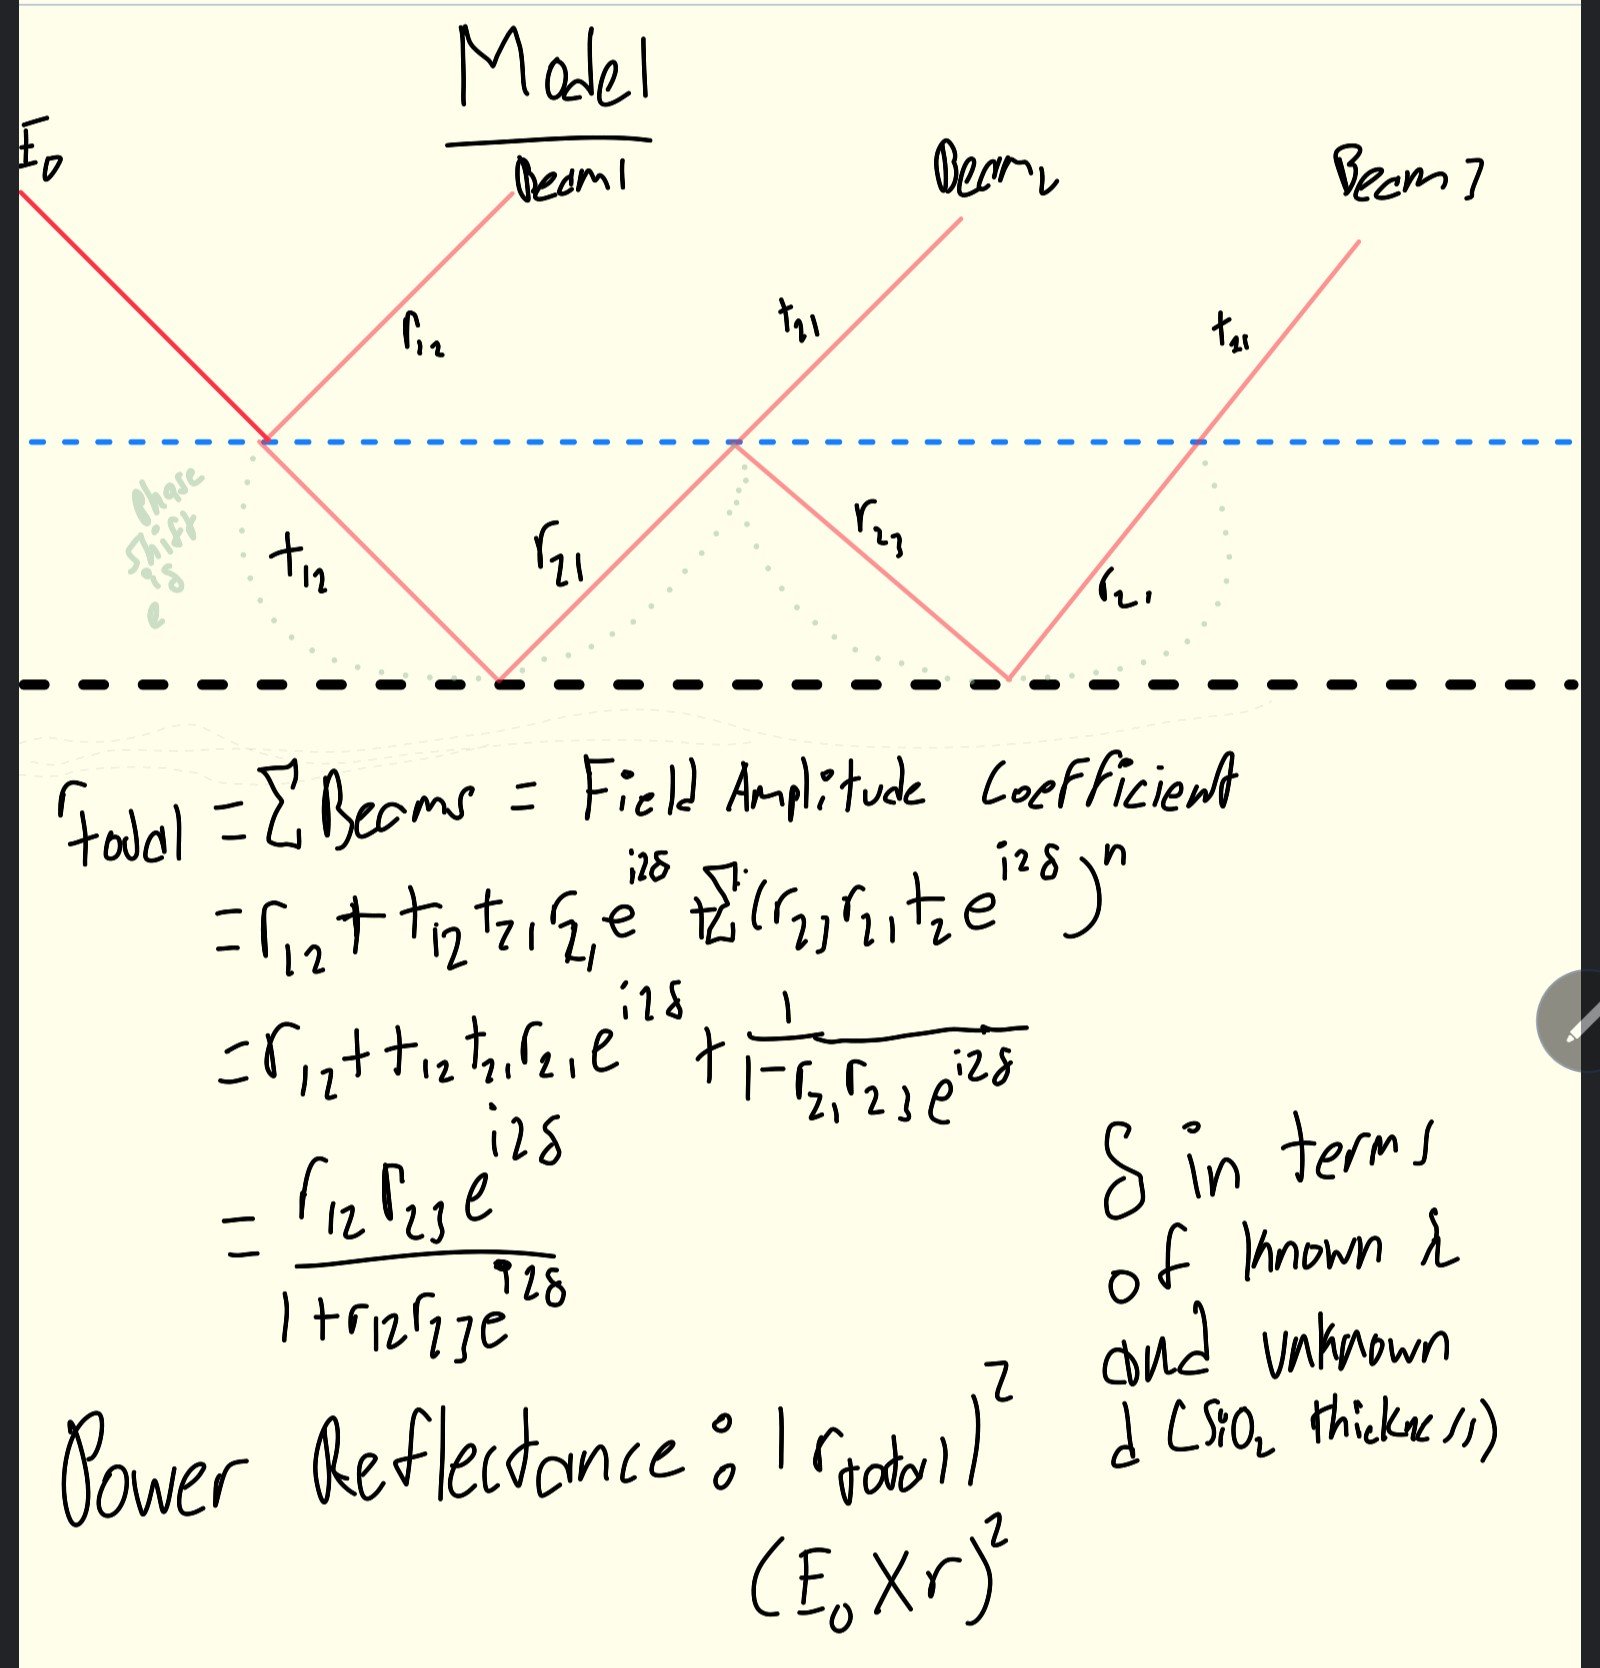 Model
E₀
Beam 1
Beam 2
Beam 3
r₁₂
t₂₁
t₂₁
Phase
shift
iδ
e
t₁₂
r₂₁
r₂₃
r₂₁
r_total = Σ Beams = Field Amplitude Coefficient
= r₁₂ + t₁₂ t₂₁ r₂₁ e^{i2δ} + Σ (r₂₃ r₂₁ t₂ e^{i2δ})^n
= r₁₂ + t₁₂ t₂₁ r₂₁ e^{i2δ} + 1 / (1 - r₂₁ r₂₃ e^{i2δ})
= r₁₂ r₂₃ e^{i2δ} / (1 + r₁₂ r₂₃ e^{i2δ})
δ in terms
of known λ
and unknown
d (SiO₂ thickness)
Power Reflectance: |r_total|²
(E₀ X r)²